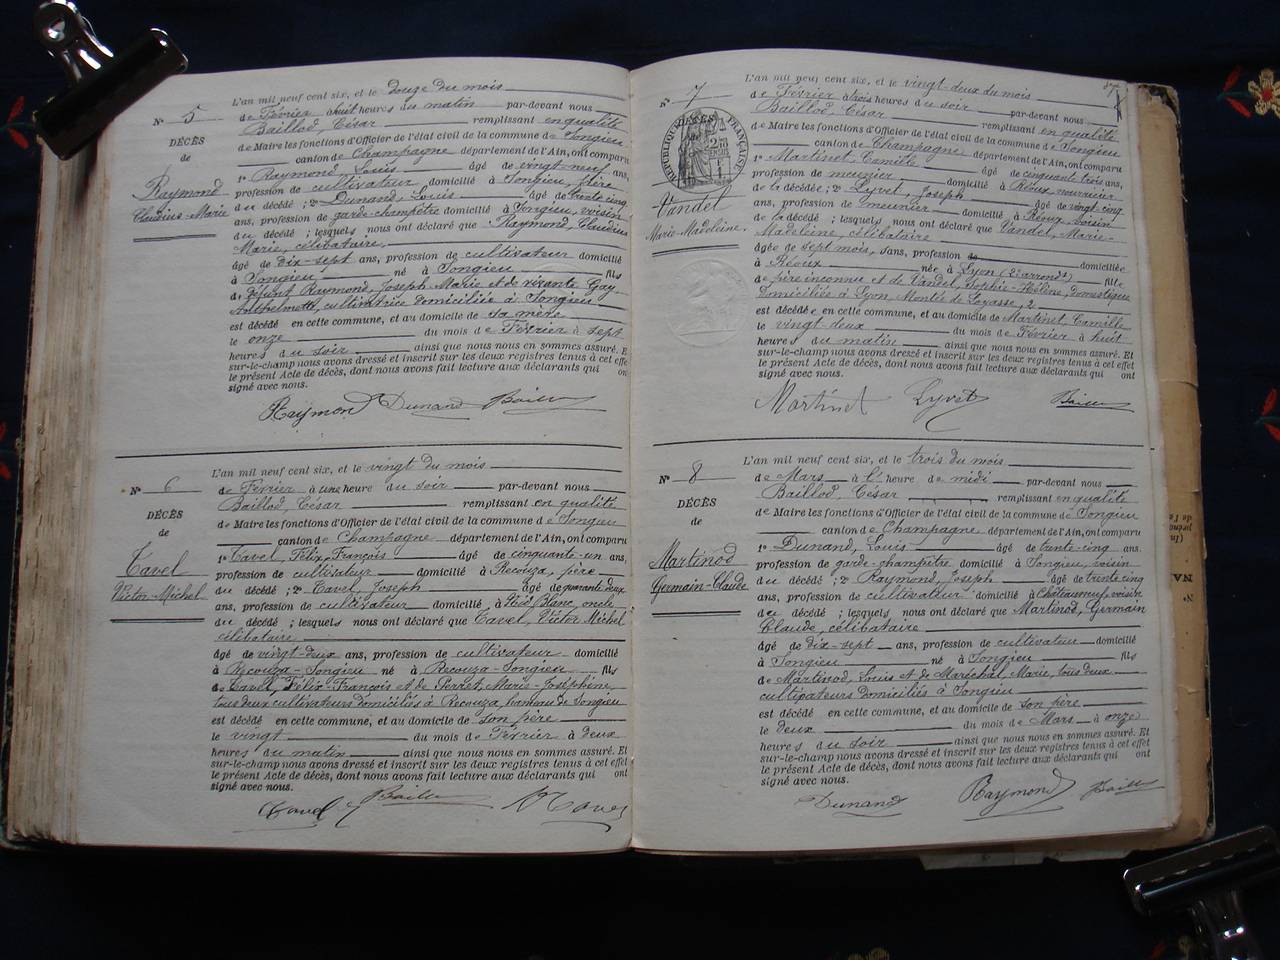 N° 5
DÉCÈS
de
Raymond
Claudius-Marie
L'an mil neuf cent six, et le douze du mois
de Février à huit heures du matin par-devant nous
Baillod, César remplissant en qualité
de Maire les fonctions d'Officier de l'état civil de la commune de Songieu
canton de Champagne département de l'Ain, ont comparu
1° Raymond Louis âgé de vingt-neuf ans,
profession de cultivateur domicilié à Songieu, frère
du décédé ; 2° Dunand, Louis âgé de trente cinq
ans, profession de garde-champêtre domicilié à Songieu, voisin
du décédé ; lesquels nous ont déclaré que Raymond, Claudius
Marie, célibataire
âgé de dix-sept ans, profession de cultivateur domicilié
à Songieu né à Songieu fils
de défunt Raymond, Joseph-Marie et de vivante Gay
cultivatrice domiciliée à Songieu
est décédé en cette commune, et au domicile de sa mère
le onze du mois de Février à sept
heures du soir ainsi que nous nous en sommes assuré. Et
sur-le-champ nous avons dressé et inscrit sur les deux registres tenus à cet effet
le présent Acte de décès, dont nous avons fait lecture aux déclarants qui ont
signé avec nous.
Raymond Dunand Baillod
N° 6
DÉCÈS
de
Tavel
Victor-Michel
L'an mil neuf cent six, et le vingt du mois
de Février à une heure du soir par-devant nous
Baillod, César remplissant en qualité
de Maire les fonctions d'Officier de l'état civil de la commune de Songieu
canton de Champagne département de l'Ain, ont comparu
1° Tavel, Félix, François âgé de cinquante-un ans,
profession de cultivateur domicilié à Recouza, père
du décédé ; 2° Tavel, Joseph âgé de quarante deux
ans, profession de cultivateur domicilié à Blanc, oncle
du décédé ; lesquels nous ont déclaré que Tavel, Victor Michel
célibataire
âgé de vingt-deux ans, profession de cultivateur domicilié
à Recouza-Songieu né à Recouza-Songieu fils
de Tavel, Félix-François et de Perret, Marie-Joséphine,
tous deux cultivateurs domiciliés à Recouza, hameau de Songieu
est décédé en cette commune, et au domicile de son père
le vingt du mois de Février à deux
heures du matin ainsi que nous nous en sommes assuré. Et
sur-le-champ nous avons dressé et inscrit sur les deux registres tenus à cet effet
le présent Acte de décès, dont nous avons fait lecture aux déclarants qui ont
signé avec nous.
Tavel Baillod Tavel
N° 7
RÉPUBLIQUE FRANÇAISE
Vandel
Marie-Madeleine
L'an mil neuf cent six, et le vingt-deux du mois
de Février à trois heures du soir par-devant nous
Baillod, César remplissant en qualité
de Maire les fonctions d'Officier de l'état civil de la commune de Songieu
canton de Champagne département de l'Ain, ont comparu
1° Martinet Camille âgé de cinquante trois ans,
profession de meunier domicilié à Réoux, nourricier
de la décédée ; 2° Lyvet, Joseph âgé de vingt-cinq
ans, profession de meunier domicilié à Réoux, voisin
de la décédé ; lesquels nous ont déclaré que Vandel, Marie-
Madeleine, célibataire
âgée de sept mois, sans, profession de domiciliée
à Réoux née à Lyon (2e arrondt) fille
de père inconnu et de Vandel, Sophie-Hélène, domestique
domiciliés à Lyon, Montée de Loyasse, 2
est décédée en cette commune, et au domicile de Martinet, Camille
le vingt-deux du mois de Février à huit
heures du matin ainsi que nous nous en sommes assuré. Et
sur-le-champ nous avons dressé et inscrit sur les deux registres tenus à cet effet
le présent Acte de décès, dont nous avons fait lecture aux déclarants qui ont
signé avec nous.
Martinet Lyvet Baillod
N° 8
DÉCÈS
de
Martinod
Germain-Claude
L'an mil neuf cent six, et le trois du mois
de Mars à l' heure de midi par-devant nous
Baillod, César remplissant en qualité
de Maire les fonctions d'Officier de l'état civil de la commune de Songieu
canton de Champagne département de l'Ain, ont comparu
1° Dunand, Louis âgé de trente-cinq ans
profession de garde-champêtre domicilié à Songieu, voisin
du décédé ; 2° Raymond, Joseph âgé de trente cinq
ans, profession de cultivateur domicilié à Châteauneuf, voisin
du décédé ; lesquels nous ont déclaré que Martinod, Germain
Claude, célibataire
âgé de dix-sept ans, profession de cultivateur domicilié
à Songieu né à Songieu fils
de Martinod, Louis et de Maréchal, Marie, tous deux
cultivateurs domiciliés à Songieu
est décédé en cette commune, et au domicile de son père
le deux du mois de Mars à onze
heures du soir ainsi que nous nous en sommes assuré. Et
sur-le-champ nous avons dressé et inscrit sur les deux registres tenus à cet effet
le présent Acte de décès, dont nous avons fait lecture aux déclarants qui ont
signé avec nous.
Dunand Raymond Baillod